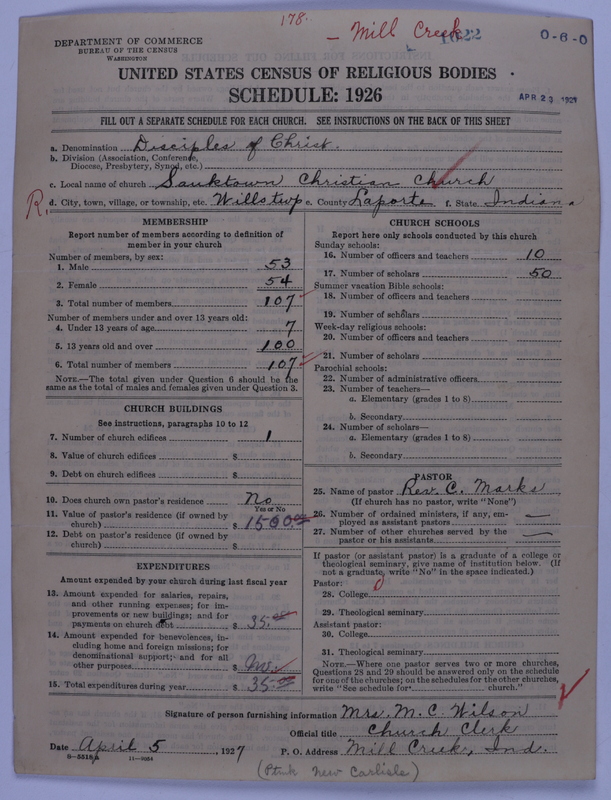 178.
— Mill Creek
1022
0-6-0
DEPARTMENT OF COMMERCE
BUREAU OF THE CENSUS
WASHINGTON
UNITED STATES CENSUS OF RELIGIOUS BODIES
SCHEDULE: 1926
APR 23 1927
FILL OUT A SEPARATE SCHEDULE FOR EACH CHURCH. SEE INSTRUCTIONS ON THE BACK OF THIS SHEET
a. Denomination Disciples of Christ.
b. Division (Association, Conference, Diocese, Presbytery, Synod, etc.)
c. Local name of church Sauktown Christian Church
R d. City, town, village, or township, etc. Wills twp e. County Laporte f. State Indiana
MEMBERSHIP
Report number of members according to definition of
member in your church
Number of members, by sex:
1. Male 53
2. Female 54
3. Total number of members 107
Number of members under and over 13 years old:
4. Under 13 years of age 7
5. 13 years old and over 100
6. Total number of members 107
NOTE.—The total given under Question 6 should be the
same as the total of males and females given under Question 3.
CHURCH BUILDINGS
See instructions, paragraphs 10 to 12
7. Number of church edifices 1
8. Value of church edifices $
9. Debt on church edifices $
10. Does church own pastor's residence No
Yes or No
11. Value of pastor's residence (if owned by
church) $ 1500.00
12. Debt on pastor's residence (if owned by
church) $
EXPENDITURES
Amount expended by your church during last fiscal year
13. Amount expended for salaries, repairs,
and other running expenses; for im-
provements or new buildings; and for
payments on church debt $ 35.00
14. Amount expended for benevolences, in-
cluding home and foreign missions; for
denominational support; and for all
other purposes $
15. Total expenditures during year $ 35.00
CHURCH SCHOOLS
Report here only schools conducted by this church
Sunday schools:
16. Number of officers and teachers 10
17. Number of scholars 50
Summer vacation Bible schools:
18. Number of officers and teachers
19. Number of scholars
Week-day religious schools:
20. Number of officers and teachers
21. Number of scholars
Parochial schools:
22. Number of administrative officers
23. Number of teachers—
a. Elementary (grades 1 to 8)
b. Secondary
24. Number of scholars—
a. Elementary (grades 1 to 8)
b. Secondary
PASTOR
25. Name of pastor Rev. C. Marks
(If church has no pastor, write "None")
26. Number of ordained ministers, if any, em-
ployed as assistant pastors —
27. Number of other churches served by the
pastor or his assistants —
If pastor (or assistant pastor) is a graduate of a college or
theological seminary, give name of institution below. (If
not a graduate, write "No" in the space indicated.)
Pastor: 0
28. College
29. Theological seminary
Assistant pastor:
30. College
31. Theological seminary
NOTE.—Where one pastor serves two or more churches,
Questions 28 and 29 should be answered only on the schedule
for one of the churches; on the schedules for the other churches,
write "See schedule for church."
Signature of person furnishing information Mrs. M. C. Wilson
Official title Church Clerk
Date April 5, 1927 P. O. Address Mill Creek, Ind.
11—9554
New Carlisle)